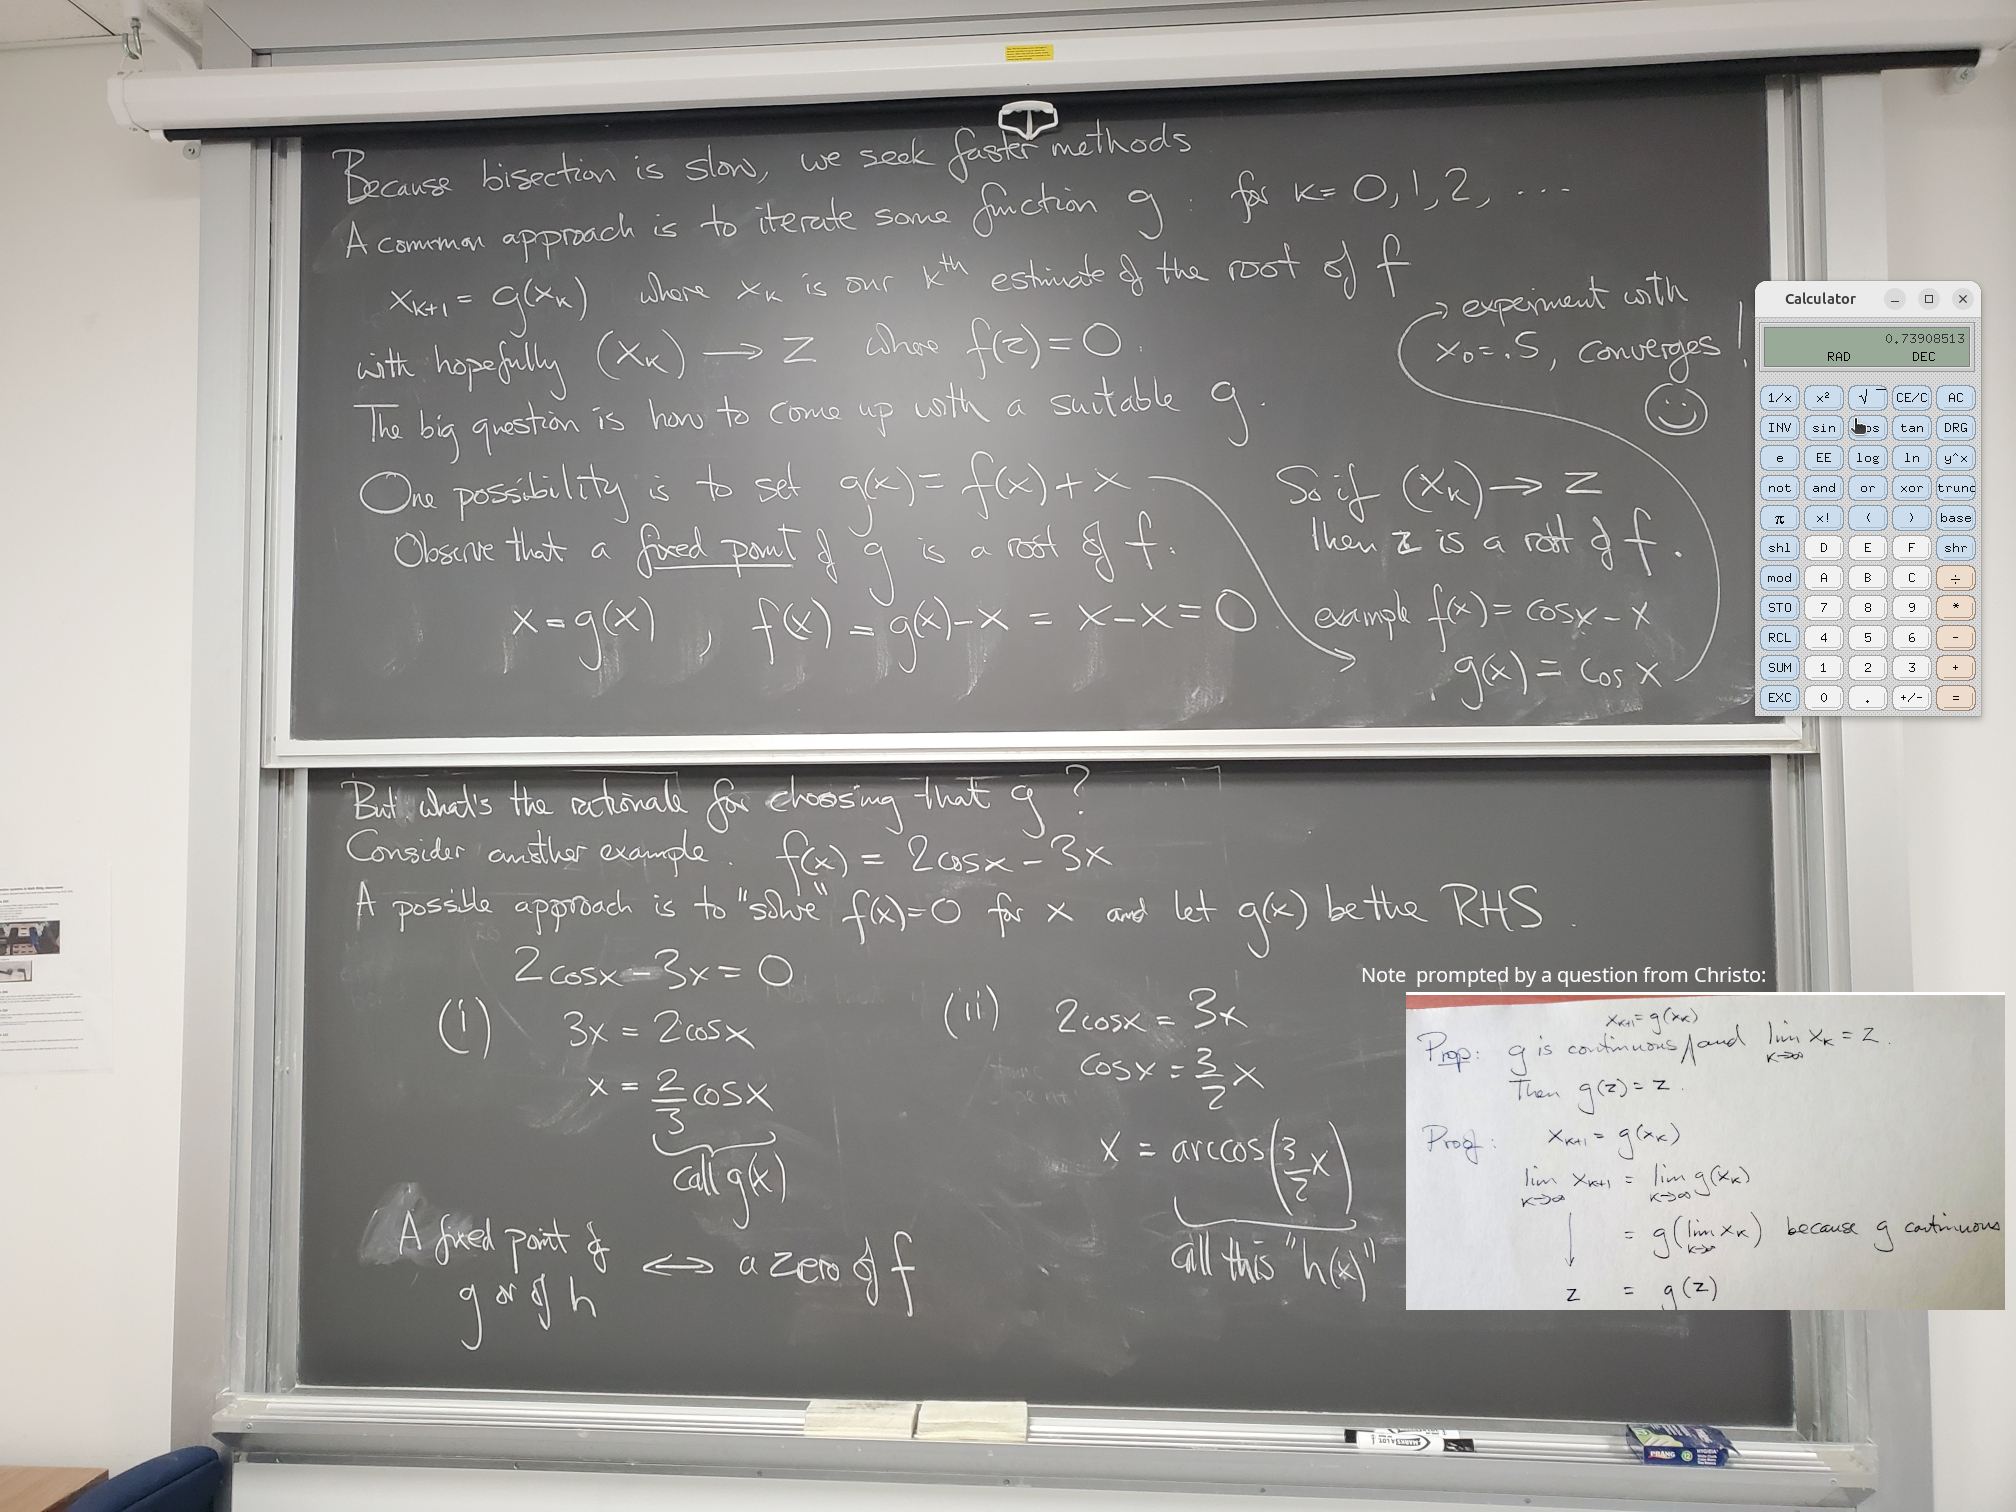 Because bisection is slow, we seek faster methods
A common approach is to iterate some function g : for k = 0, 1, 2, ...
x_{k+1} = g(x_k) where x_k is our k^th estimate of the root of f
with hopefully (x_k) → z where f(z) = 0.
The big question is how to come up with a suitable g.
One possibility is to set g(x) = f(x) + x
Observe that a fixed point of g is a root of f.
x = g(x) , f(x) = g(x) - x = x - x = 0
→ experiment with
x_0 = .5, converges!
So if (x_k) → z
then z is a root of f.
example f(x) = cos x - x
g(x) = cos x
Calculator
0.73908513
RAD DEC
1/x x² √ CE/C AC
INV sin tan DRG
e EE log ln y^x
not and or xor trunc
π x! ( ) base
shl D E F shr
mod A B C ÷
STO 7 8 9 *
RCL 4 5 6 -
SUM 1 2 3 +
EXC 0 . +/- =
But what's the rationale for choosing that g?
Consider another example. f(x) = 2cosx - 3x
A possible approach is to "solve" f(x)=0 for x and let g(x) be the RHS.
2cosx - 3x = 0
(i) 3x = 2cosx
x = 2/3 cosx
call g(x)
(ii) 2cosx = 3x
cosx = 3/2 x
x = arccos(3/2 x)
call this "h(x)"
A fixed point of
g or of h ⟺ a zero of f
Note prompted by a question from Christo:
x_{k+1} = g(x_k)
Prop: g is continuous / and lim_{k→∞} x_k = z.
Then g(z) = z.
Proof: x_{k+1} = g(x_k)
lim_{k→∞} x_{k+1} = lim_{k→∞} g(x_k)
= g(lim_{k→∞} x_k) because g continuous
z = g(z)
PRANG